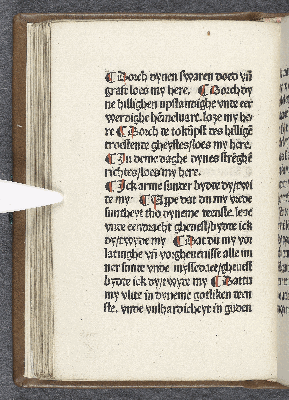 ¶ Dorch dynen swaren doed vñ
graft loes my here. ¶ Dorch dy
ne hillighen upstandighe vnde eer
werdighe hēmeluart. loze my he
re ¶ Dorch de tokūpst des hilligē
troestente gheystes loes my here.
¶ In deme daghe dynes strēghē
richtes/loes my here.
¶ Ick arme sunter bydde dy/twi
de my ¶ Uppe dat du my vrede
suntheyt tho dyneme deenste. leue
vnde eendracht gheuest/bydde ick
dy/twyde my ¶ Dat du my vor
latinghe vñ vorgheuenisse alle my
ner sunde vnde myssedaet/gheuest
bydde ick dy/twyde my ¶ Dattu
my vlite in dyneme gotliken deen
ste. vnde vulhardicheyt in guden